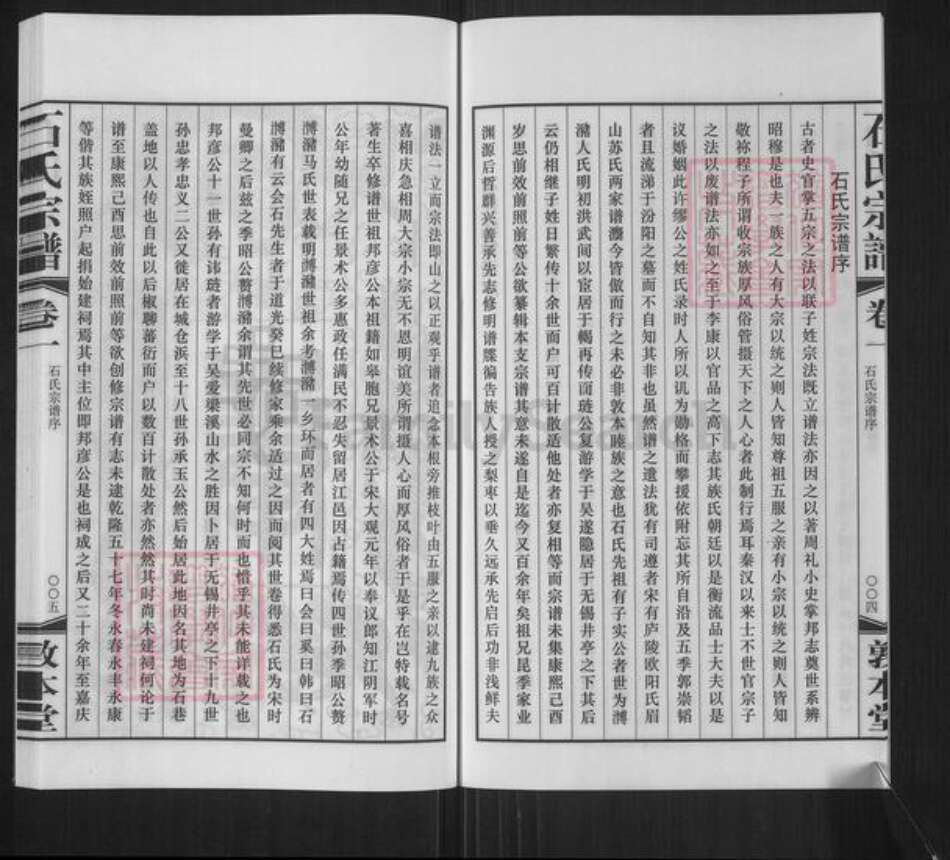 石氏宗谱 卷一 石氏宗谱序 〇〇四 敦本堂
石氏宗谱序
古者史官掌五宗之法以联子姓宗法既立谱法亦因之以著周礼小史掌邦志奠世系辨
昭穆是也夫一族之人有大宗以统之则人皆知尊祖五服之亲有小宗以统之则人皆知
敬祢程子所谓收宗族厚风俗管摄天下之人心者此制行焉耳秦汉以来士不世官宗子
之法以废谱法亦如之至于李康以官品之高下志其族氏朝廷以是衡流品士大夫以是
议婚姻此许缪公之姓氏录时人所以讥为勋格而攀援依附忘其所自沿及五季郭崇韬
者且流涕于汾阳之墓而不自知其非也虽然谱之遗法犹有司遵者宋有庐陵欧阳氏眉
山苏氏两家谱牒今皆倣而行之未必非敦本睦族之意也石氏先祖有子实公者世为溥
潴人氏明初洪武间以宦居于
再传而琏公复游学于吴遂隐居于无锡井亭之下其后
云仍相继子姓日繁传十余世而户可百计散适他处者亦复相等而宗谱未集康熙己酉
岁思前效前照前等公欲纂辑本支宗谱其意未遂自是迄今又百余年矣祖兄昆季家业
渊源后哲群兴善承先志修明谱牒徧告族人授之梨枣以垂久远承先启后功非浅鲜夫
谱法一立而宗法即山之以正观乎谱者追念本根旁推枝叶由五服之亲以逮九族之众
喜相庆急相周大宗小宗无不恩明谊美所谓摄人心而厚风俗者于是乎在岂特载名号
著生卒修谱世祖邦彦公本祖籍如皋胞兄景术公于宋大观元年以奉议郎知江阴军时
公年幼随兄之任景术公多惠政任满民不忍失留居江邑因占籍焉传四世孙季昭公赘
溥潴马氏世表载明溥潴世祖余考溥潴一乡环而居者有四大姓焉曰会曰奚曰韩曰石
溥潴有云会石先生者于道光癸巳续修家乘余适过之因而阅其世卷得悉石氏为宋时
曼卿之后兹之季昭公赘溥潴余谓其先世必同宗不知何时而也惜乎其未能详载之也
邦彦公十一世孙有讳琏者游学于吴爱梁溪山水之胜因卜居于无锡井亭之下十九世
孙忠孝忠义二公又徙居在城仓浜至十八世孙承玉公然后始居此地因名其地为石巷
盖地以人传也自此以后椒聊蕃衍而户以数百计散处者亦然然其时尚未建祠何论于
谱至康熙己酉思前效前照前等欲创修宗谱有志未逮乾隆五十七年冬永春永丰永康
等偕其族姪照户起捐始建祠焉其中主位即邦彦公是也祠成之后又二十余年至嘉庆
石氏宗谱 卷一 石氏宗谱序 〇〇五 敦本堂